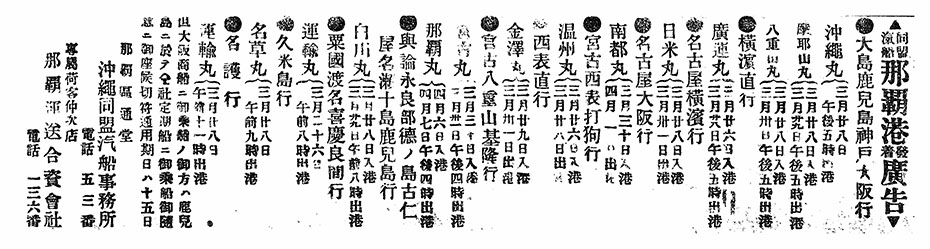 ▲同盟汽船那覇港發着廣告▼
●大島鹿兒島神戸大阪行
沖縄丸(三月廿八日午後五時出港
摩耶山丸(三月廿八日入港三月廿九日午後五時出港
八重山丸(三月廿八日午後五時出港
●横濱直行
廣運丸(三月廿六日入港三月廿八日午後五時出港
●名古屋横濱行
日米丸(三月廿八日入港
●名古屋大阪行
南都丸(三月三十日入港四月一日出
●宮古西表打狗行
温州丸(三月廿六日入港三月廿八日出港
●西表直行
金澤丸(三月廿九日入港三月卅一日出港
●宮古八重山基隆行
宮古丸(三月三十日入港三月卅一日午後四時出港
那覇丸(四月六日入港四月七日午後四時出港
●與論永良部德ノ島古仁屋名瀬十島鹿兒島行
白川丸(三月廿八日入港三月廿九日午前八時出港
●粟國渡名喜慶良間行
運輸丸(三月二十六日午前八時出港
●久米島行
名草丸(三月廿八日午前九時出港
●名護行
運輸丸(三月廿八日午前十一時出港
但大阪商船ニ御乗船ノ御方ハ鹿兒
島ニ於テ全社定期船ニ御乗船御随
意ニ御座候切符通用期日ハ十五日
那覇區通堂
沖縄同盟汽船事務所
電話 五三番
專屬荷客仲次店
那覇運送合資會社
電話 一三六番